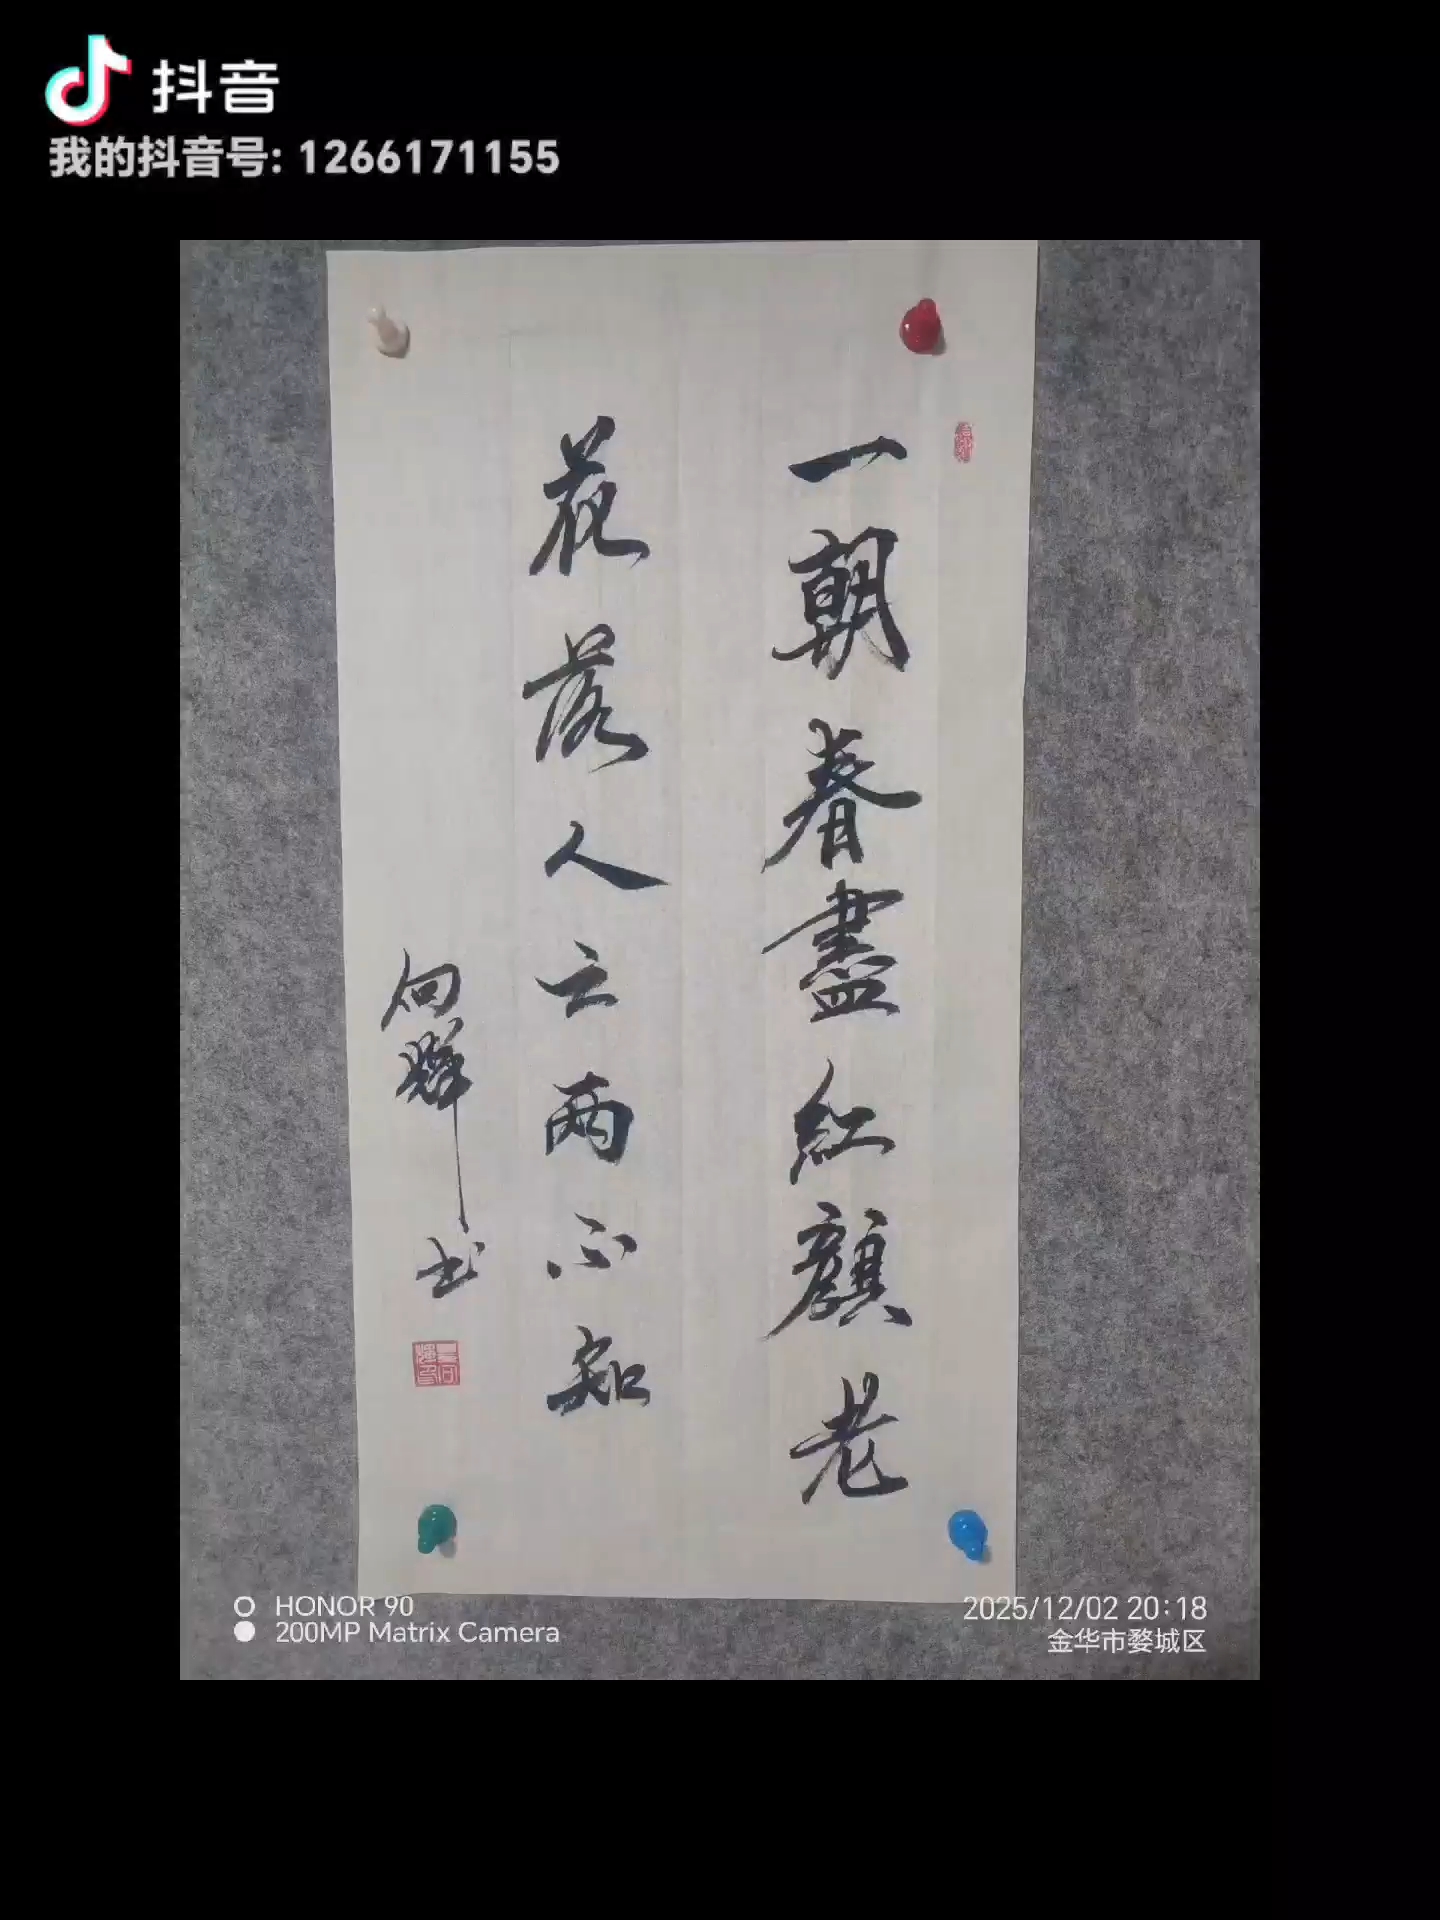 抖音
我的抖音号: 1266171155
一朝春盡紅顏老
花落人亡兩不知
向輝书
HONOR 90
200MP Matrix Camera
2025/12/02 20:18
金华市婺城区